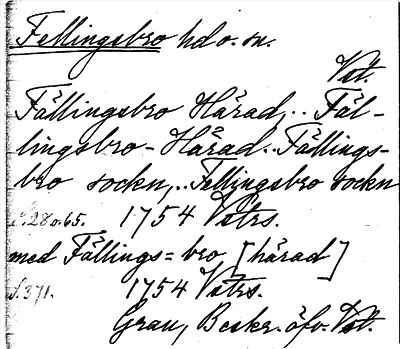 Fellingsbro hd o. sn.
Vst.
Fällingsbro Härad,.. Fäl-
lingsbro-Härad.. Fällings-
bro sockn,.. Fellingsbro sockn
s. 28 o. 65. 1754 Vstrs.
med Fällings=bro [härad]
S. 371. 1754 Vstrs.
Grau, Beskr. öfv. Vst.